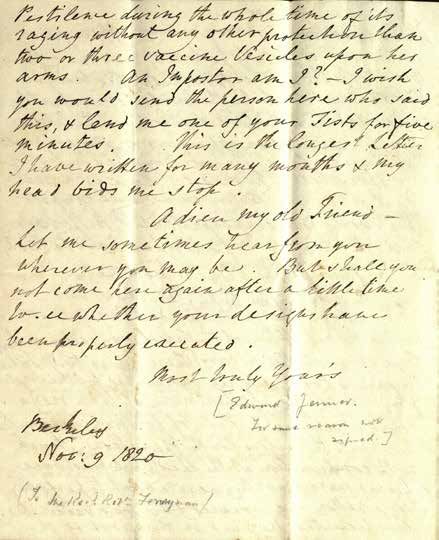 Pestilence during the whole time of its
raging without any other protection than
two or three vaccine Vesicles upon her
arms. An Impostor am I? – I wish
you would send the person here who said
this, & lend me one of your Fists for five
minutes. This is the longest Letter
I have written for many months & my
head bids me stop.
Adieu my old Friend –
Let me sometimes hear from you
wherever you may be. But shall you
not come here again after a little time
to see whether your designs have
been properly executed.
Most truly Yours
[Edward Jenner.
For some reason not
signed.]
Berkeley
Nov: 9 1820
(To the Revd. Robt. Ferryman)